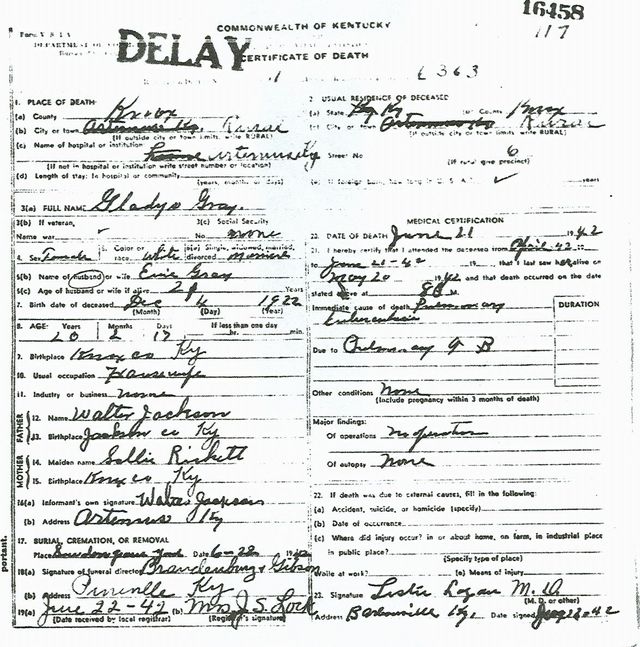 16458
117
Form V. S. 1-A
COMMONWEALTH OF KENTUCKY
DELAY
CERTIFICATE OF DEATH
1. PLACE OF DEATH
(a) County Knox
(b) City or town Artemus Ky. Rural
(If outside city or town limits, write RURAL)
(c) Name of hospital or institution
home Artemus Ky
(If not in hospital or institution write street number or location)
(d) Length of stay: In hospital or community
(years, months or days)
2. USUAL RESIDENCE OF DECEASED
(a) State Ky (b) County Knox
(c) City or town Artemus Ky Rural
(If outside city or town limits, write RURAL)
Street No 6
(If rural give precinct)
years
3(a) FULL NAME Gladys Gray.
3(b) If veteran,
Name war
3(c) Social Security
No none
4. Sex Female 5. Color or race white 6(a) Single, widowed, married, divorced married
6(b) Name of husband or wife Gray
6(c) Age of husband or wife if alive Years
7. Birth date of deceased Dec 4 1922
(Month) (Day) (Year)
8. AGE: Years Months Days If less than one day
hr. min.
9. Birthplace Knox co Ky
10. Usual occupation Housewife
11. Industry or business none
FATHER
12. Name Walter Jackson
13. Birthplace Jackson co Ky
MOTHER
14. Maiden name Sallie Rickett
15. Birthplace Knox co Ky
16(a) Informant's own signature Walter Jackson
(b) Address Artemus Ky
17. BURIAL, CREMATION, OR REMOVAL
Place Date 6-22 1942
18(a) Signature of funeral director Brandenburg & Gibson
(b) Address Pineville Ky
19(a) June 22-42 (b) Mrs J. S. Lock
(Date received by local registrar) (Registrar's signature)
MEDICAL CERTIFICATION
20. DATE OF DEATH June 21 1942
21. I hereby certify that I attended the deceased from April 42
to June 21-42 19 that I last saw her alive on
May 20 1942 and that death occurred on the date
stated above at
Immediate cause of death Pulmonary
Tuberculosis
DURATION
Due to Pulmonary T B
Other conditions none
(Include pregnancy within 3 months of death)
Major findings:
Of operations no operation
Of autopsy None
22. If death was due to external causes, fill in the following:
(a) Accident, suicide, or homicide (specify)
(b) Date of occurrence
(c) Where did injury occur? in or about home, on farm, in industrial place
in public place?
(Specify type of place)
While at work? (e) Means of injury
23. Signature Leslie Logan M. D.
(M. D. or other)
Address Barbourville Ky. Date signed
portant.